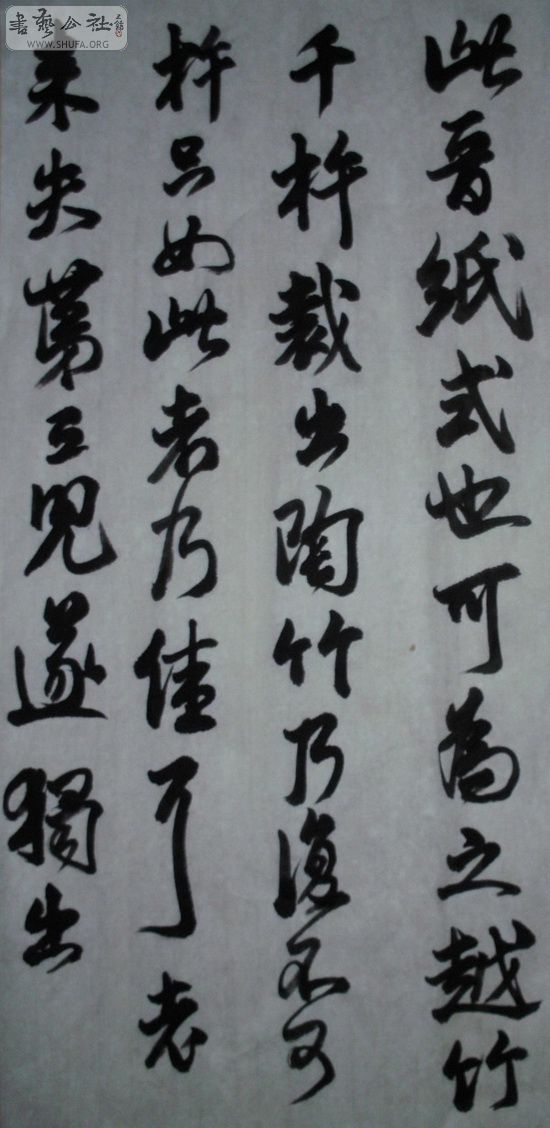 書藝公社
WWW.SHUFA.ORG
此晉紙式也可為之越竹
千杵裁出陶竹乃復不可
杵只如此者乃佳耳老
来失第三兒遂獨出